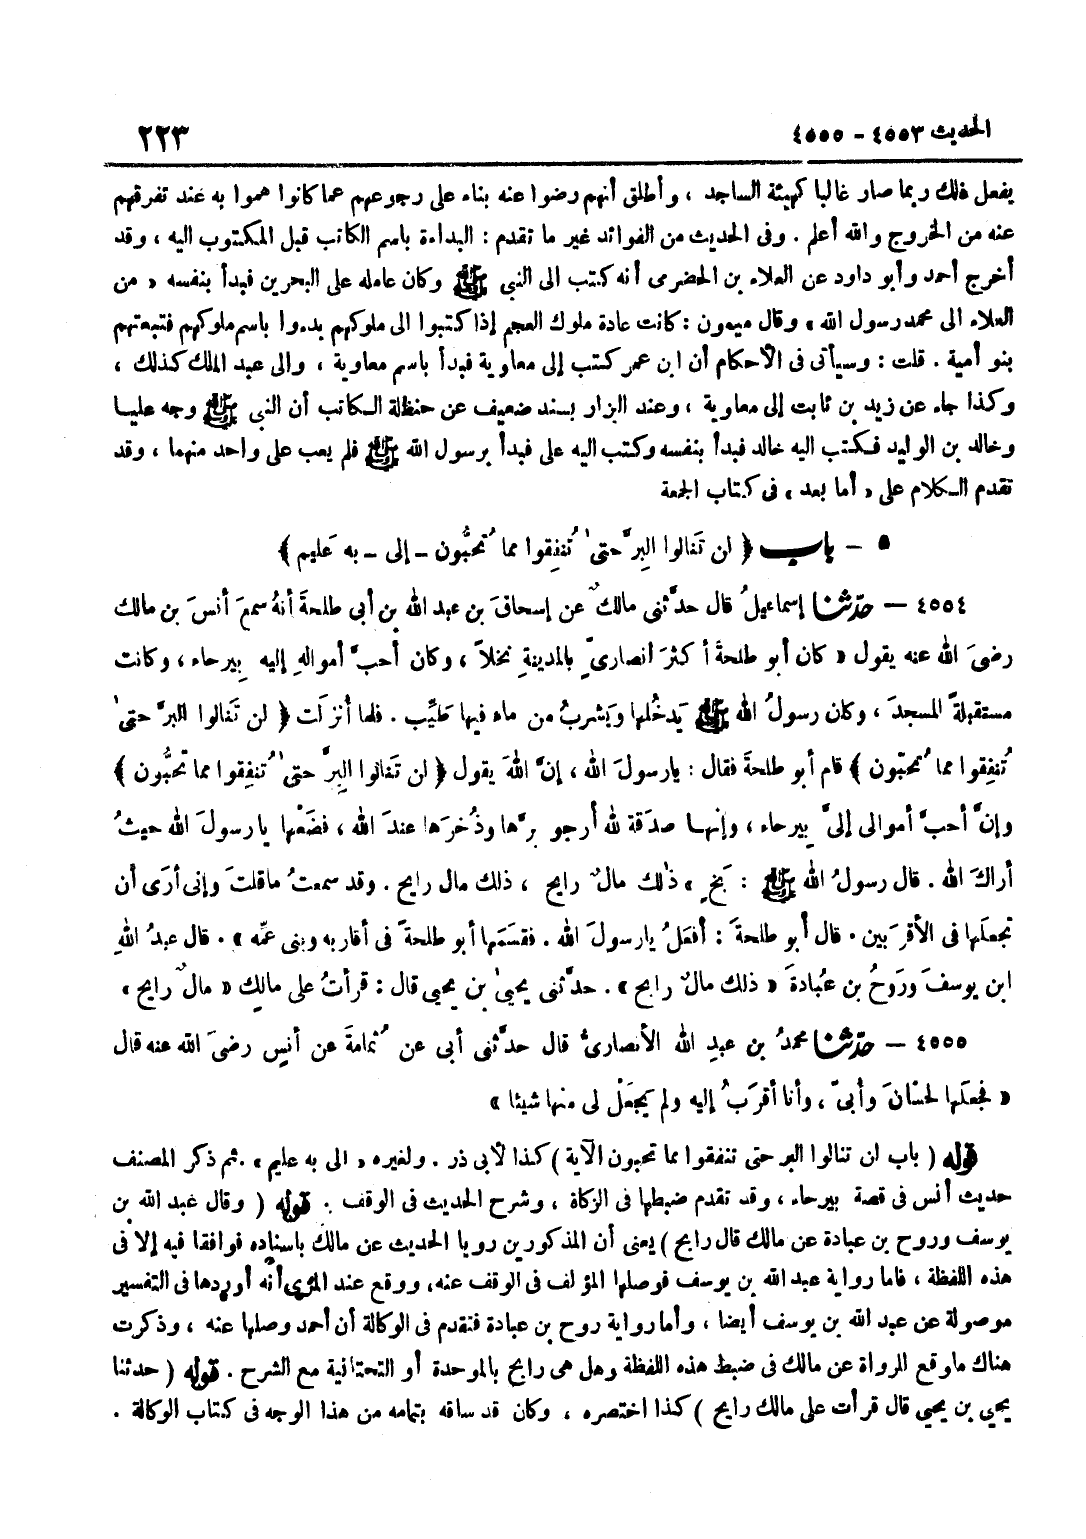 الحديث ٤٥٥٣ - ٤٥٥٥
٢٢٣
يفعل ذلك ربما صار غالبا كهيئة الساجد ، وأطلق أنهم رضوا عنه بناء على رجوعهم عما كانوا هموا به عند تفرقهم
عنه من الخروج والله أعلم . وفى الحديث من الفوائد غير ما تقدم : البداءة باسم الكاتب قبل المكتوب اليه ، وقد
أخرج أحمد وأبو داود عن العلاء بن الحضرمى أنه كتب الى النبي ﷺ وكان عامله على البحرين فبدأ بنفسه « من
العلاء الى محمد رسول الله » وقال ميمون : كانت عادة ملوك العجم إذا كتبوا الى ملوكهم بدءوا باسم ملوكهم فتبعتهم
بنو أمية . قلت : وسيأتى فى الأحكام أن ابن عمر كتب إلى معاوية فبدأ باسم معاوية ، والى عبد الملك كذلك ،
وكذا جاء عن زيد بن ثابت إلى معاوية ، وعند البزار بسند ضعيف عن حنظلة الكاتب أن النبي ﷺ وجه عليا
وخالد بن الوليد فكتب اليه خالد فبدأ بنفسه وكتب اليه على فبدأ برسول الله ﷺ فلم يعب على واحد منهما ، وقد
تقدم الكلام على « أما بعد » فى كتاب الجمعة
٥ - باب ﴿ لن تَنالوا البِرَّ حتىٰ تُنفِقوا مما تُحبُّون - إلى - به عَليم ﴾
٤٥٥٤ - حدّثنا إسماعيلُ قال حدَّثنى مالكٌ عن إسحاقَ بن عبد الله بن أبى طلحةَ أنهُ سمعَ أنسَ بن مالك
رضىَ الله عنه يقول « كان أبو طلحةَ أكثرَ أنصارىّ بالمدينةِ نخلاً ، وكان أحبَّ أموالهِ إليه بِيرحاء ، وكانت
مستقبلةَ المسجدَ ، وكان رسولُ الله ﷺ يَدخُلها ويَشربُ من ماء فيها طَيِّب . فلما أُنزلَت ﴿ لن تَنالوا البرَّ حتىٰ
تُنفِقوا مما تُحبّون ﴾ قام أبو طلحةَ فقال : يارسولَ الله ، إنَّ اللهَ يقول ﴿ لن تَنالوا البِرَّ حتىٰ تُنفِقوا مما تحبُّون ﴾
وإنَّ أحبَّ أموالى إلىَّ بِيرحاء ، وإنها صدَقة لله أرجو بِرَّها وذُخرَها عندَ الله ، فضَعْها يارسولَ الله حيثُ
أراكَ الله . قال رسولُ الله ﷺ : بَخٍ ، ذٰلك مالٌ رايح ، ذلك مال رايح . وقد سمعتُ ماقلتَ وإنى أرَى أن
تجعلَها فى الأقرَبين . قال أبو طلحةَ : أفعَلُ يارسولَ الله . فقسَمَها أبو طلحةَ فى أقاربه وبنى عمِّه » . قال عبدُ اللهِ
ابن يوسفَ ورَوحُ بن عُبادةَ « ذلك مالٌ رابح » . حدَّثنى يحيىٰ بن يحيى قال : قرأتُ على مالكٍ « مالٌ رايح »
٤٥٥٥ - حدّثنا محمدُ بن عبدِ الله الأنصارىُّ قال حدَّثنى أبى عن ثُمامةَ عن أنسٍ رضىَ الله عنه قال
« فجعلَها لحسّانَ وأبىّ ، وأنا أقرَبُ إليه ولم يَجعَلْ لى منها شيئا »
قوله ( باب لن تنالوا البر حتى تنفقوا مما تحبون الآية ) كذا لأبى ذر . ولغيره « الى به عليم » . ثم ذكر المصنف
حديث أنس فى قصة بيرحاء ، وقد تقدم ضبطها فى الزكاة ، وشرح الحديث فى الوقف . قوله ( وقال عبد الله بن
يوسف وروح بن عبادة عن مالك قال رابح ) يعنى أن المذكورين رويا الحديث عن مالك باسناده فوافقا فيه إلا فى
هذه اللفظة ، فاما رواية عبد الله بن يوسف فوصلها المؤلف فى الوقف عنه، ووقع عند المزى أنه أوردها فى التفسير
موصولة عن عبد الله بن يوسف أيضا ، وأما رواية روح بن عبادة فتقدم فى الوكالة أن أحمد وصلها عنه ، وذكرت
هناك ماوقع للرواة عن مالك فى ضبط هذه اللفظة وهل هى رابح بالموحدة أو التحتانية مع الشرح . قوله ( حدثنا
يحيى بن يحيى قال قرأت على مالك رايح ) كذا اختصره ، وكان قد ساقه بتمامه من هذا الوجه فى كتاب الوكالة .